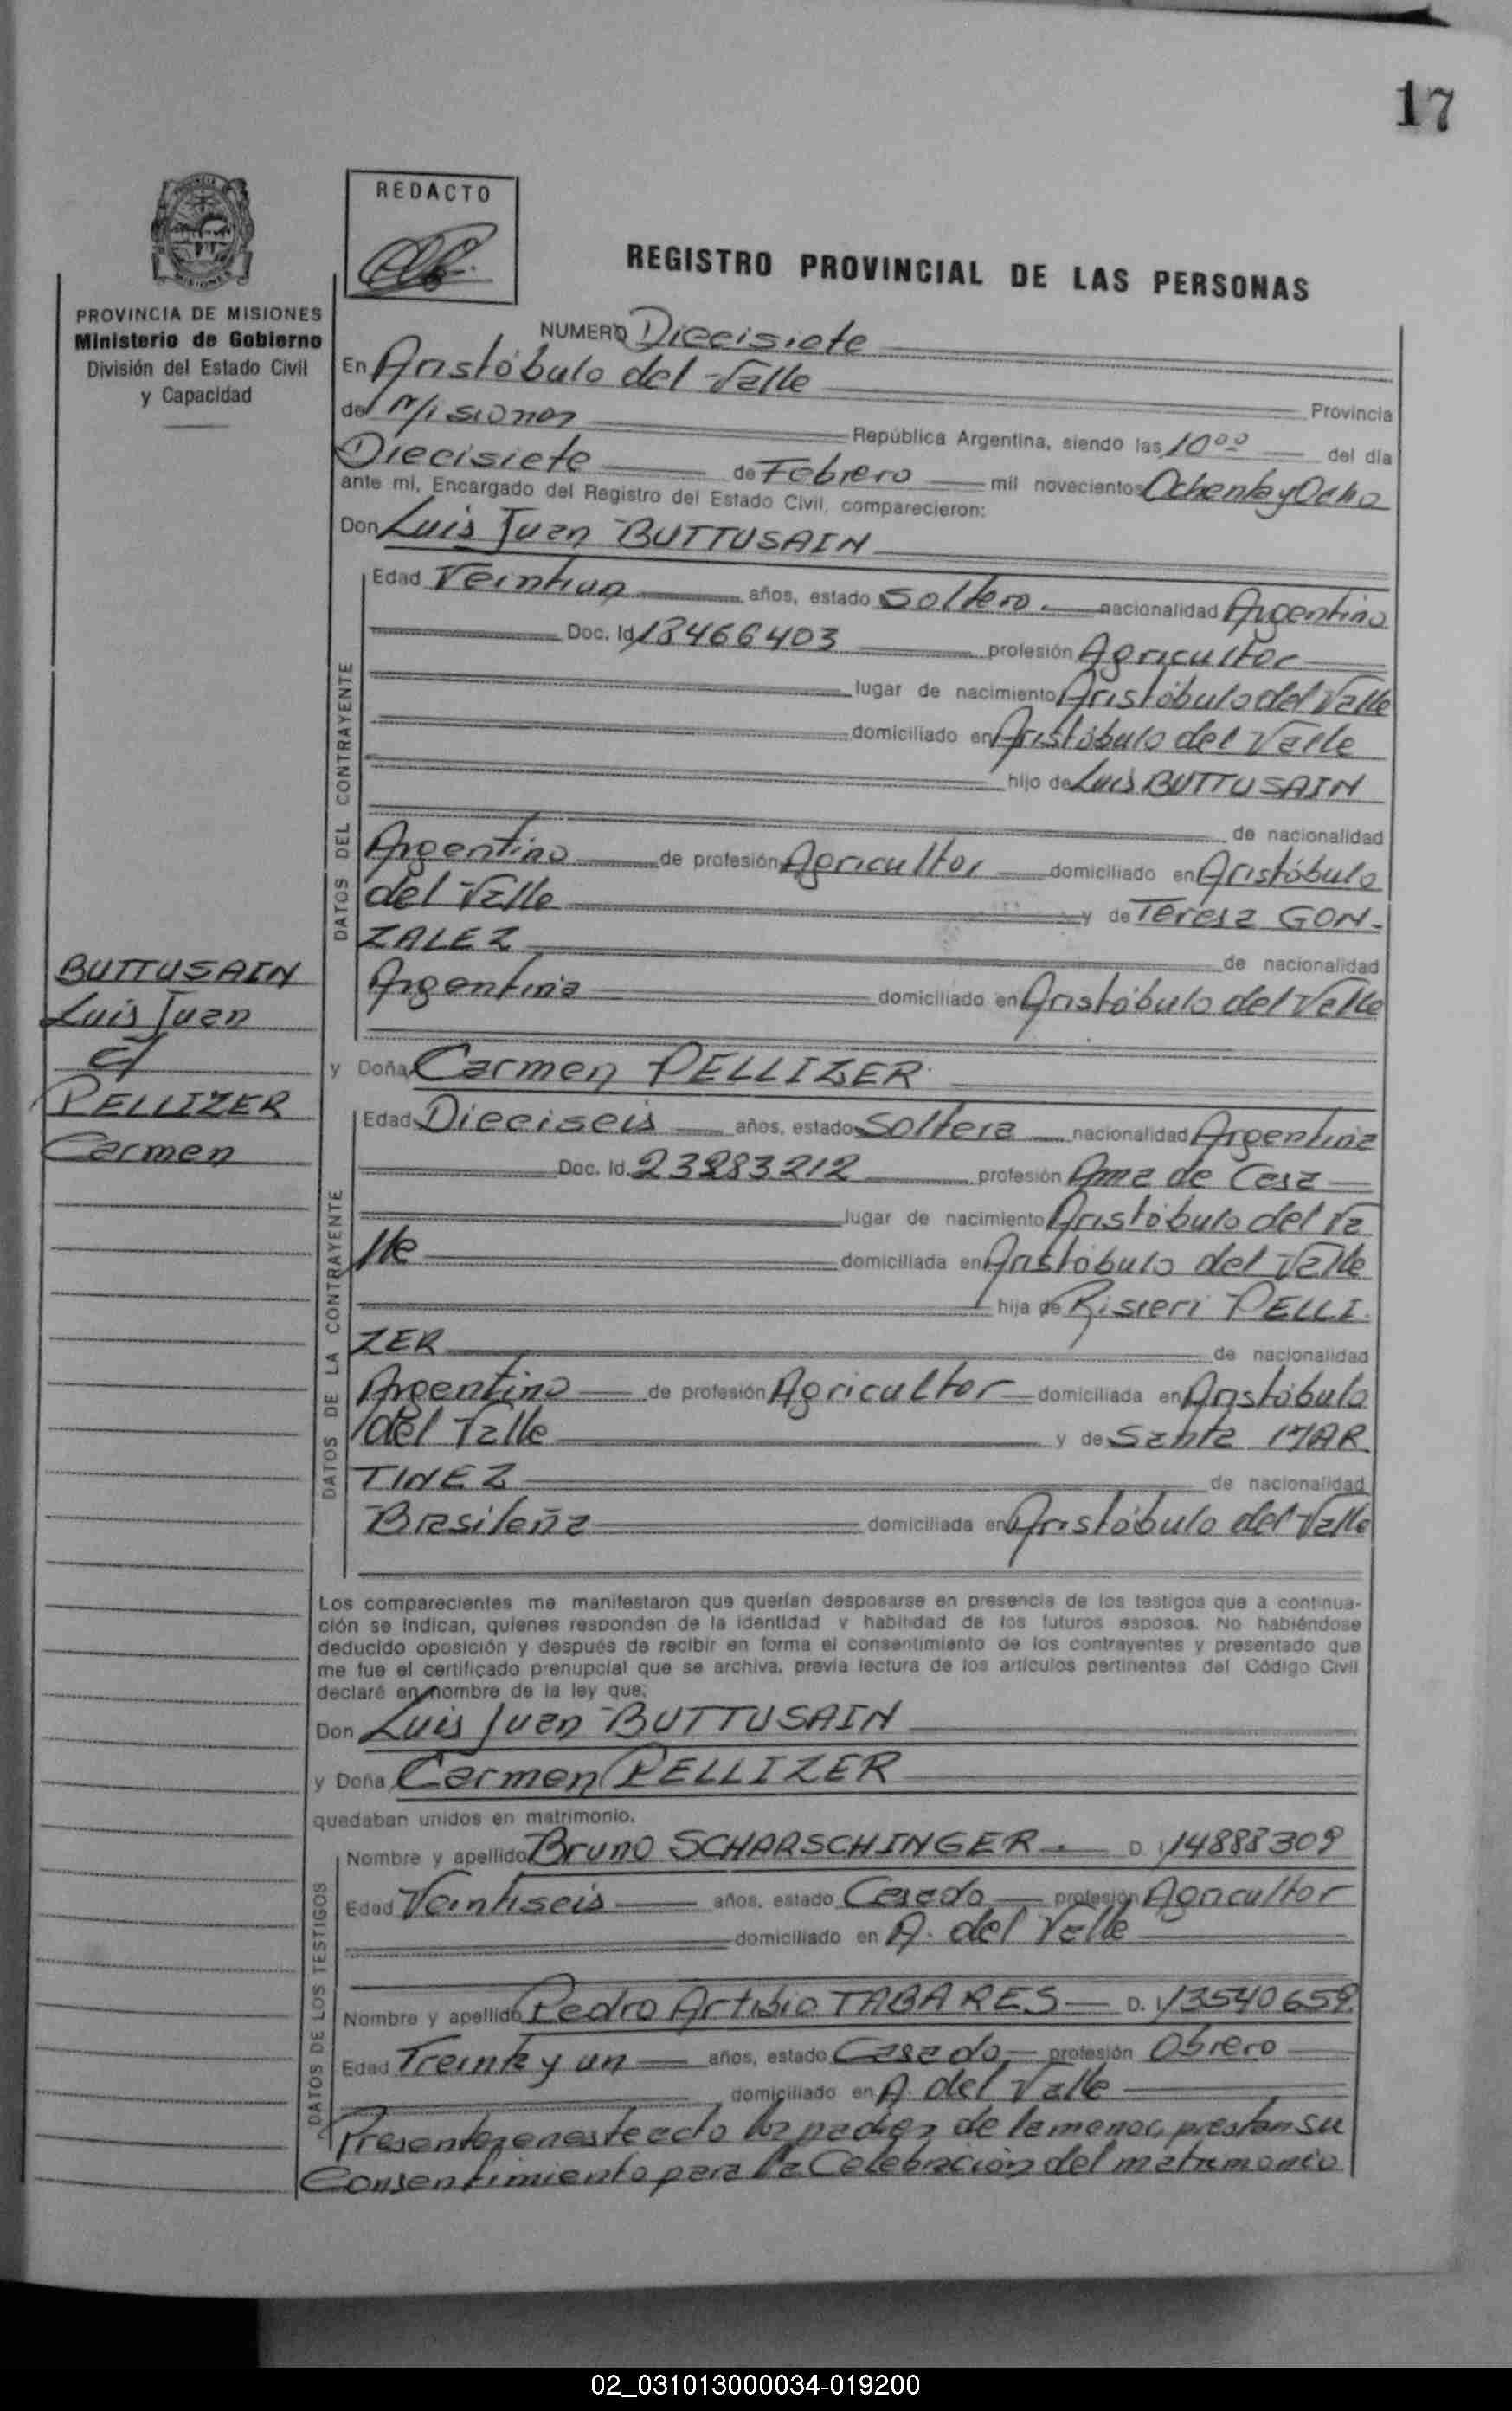 17
REDACTO
REGISTRO PROVINCIAL DE LAS PERSONAS
PROVINCIA DE MISIONES
Ministerio de Gobierno
División del Estado Civil
y Capacidad
NUMERO Diecisiete
En Aristóbulo del Valle
Provincia
de Misiones República Argentina, siendo las 10 00 del día
Diecisiete de Febrero mil novecientos Ochenta y Ocho
ante mí, Encargado del Registro del Estado Civil, comparecieron:
Don Luis Juan BUTTUSAIN
DATOS DEL CONTRAYENTE
Edad Veintiun años, estado Soltero nacionalidad Argentino
Doc. Id. 18466403 profesión Agricultor
lugar de nacimiento Aristóbulo del Valle
domiciliado en Aristóbulo del Valle
hijo de Luis BUTTUSAIN
de nacionalidad
Argentino de profesión Agricultor domiciliado en Aristóbulo
del Valle y de Teresa GON-
ZALEZ de nacionalidad
Argentina domiciliado en Aristóbulo del Valle
BUTTUSAIN
Luis Juan
c/
PELLIZER
Carmen
y Doña Carmen PELLIZER
DATOS DE LA CONTRAYENTE
Edad Dieciseis años, estado Soltera nacionalidad Argentina
Doc. Id. 23283212 profesión Ama de Casa
lugar de nacimiento Aristóbulo del Va
lle domiciliada en Aristóbulo del Valle
hija de Risieri PELLI-
ZER de nacionalidad
Argentino de profesión Agricultor domiciliada en Aristóbulo
del Valle y de Santa MAR
TINEZ de nacionalidad
Brasileña domiciliada en Aristóbulo del Valle
Los comparecientes me manifestaron que querían desposarse en presencia de los testigos que a continua-
ción se indican, quienes responden de la identidad y habilidad de los futuros esposos. No habiéndose
deducido oposición y después de recibir en forma el consentimiento de los contrayentes y presentado que
me fue el certificado prenupcial que se archiva, previa lectura de los artículos pertinentes del Código Civil
declaré en nombre de la ley que:
Don Luis Juan BUTTUSAIN
y Doña Carmen PELLIZER
quedaban unidos en matrimonio.
DATOS DE LOS TESTIGOS
Nombre y apellido Bruno SCHARSCHINGER D. I. 14888309
Edad Veintiseis años, estado Casado profesión Agricultor
domiciliado en A. del Valle
Nombre y apellido Pedro Artibio TABARES D. I. 13540659
Edad Treinta y un años, estado Casado profesión Obrero
domiciliado en A. del Valle
Presentes en este acto los padres de la menor, prestan su
Consentimiento para la Celebración del matrimonio
02_031013000034-019200